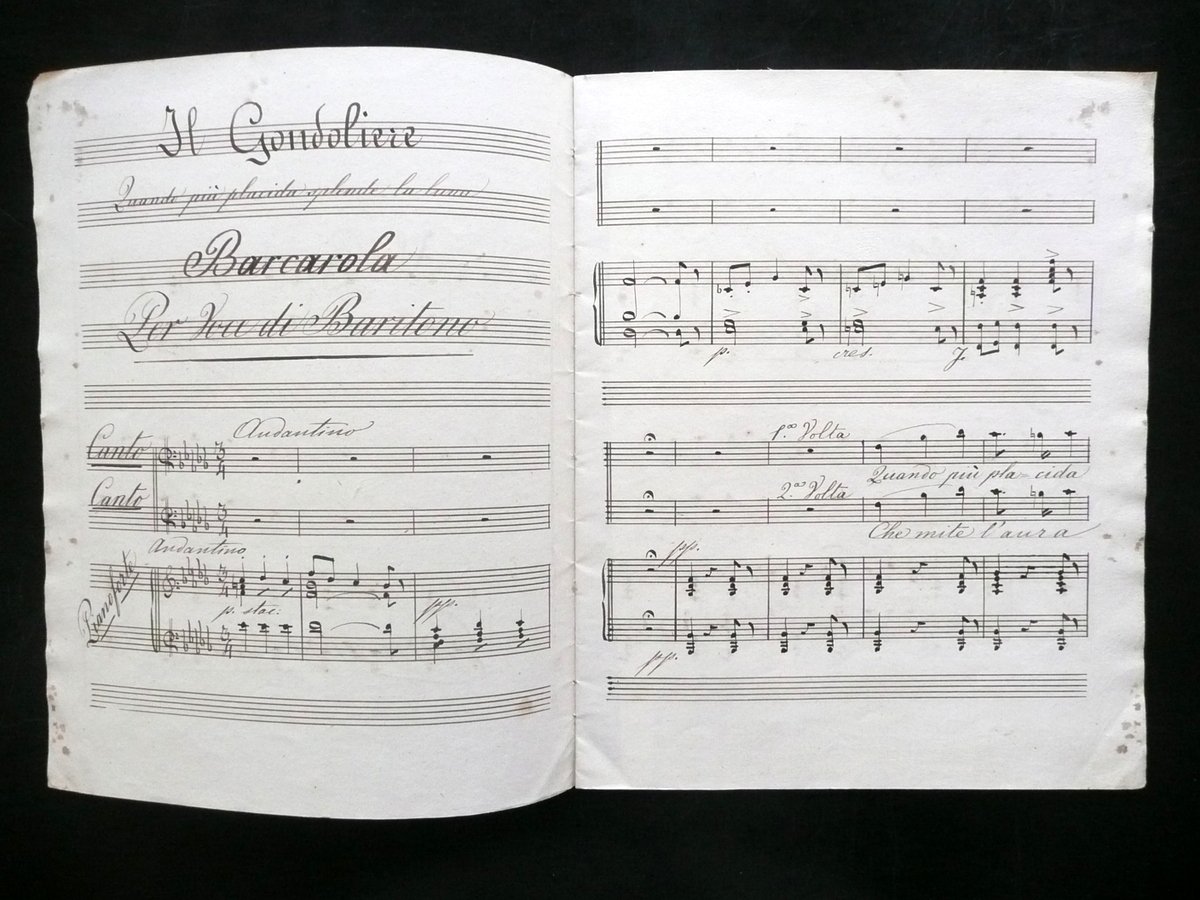 Il Gondoliere
Quando più placida splende la luna
Barcarola
Per Voce di Baritono
Andantino
Canto
3/4
Canto
3/4
Andantino
Pianoforte
3/4
p. stac:
pp.
3/4
p. cres. f.
1.a Volta
Quando più pla=cida
2.a Volta
Che mite l'aura
pp.
pp.